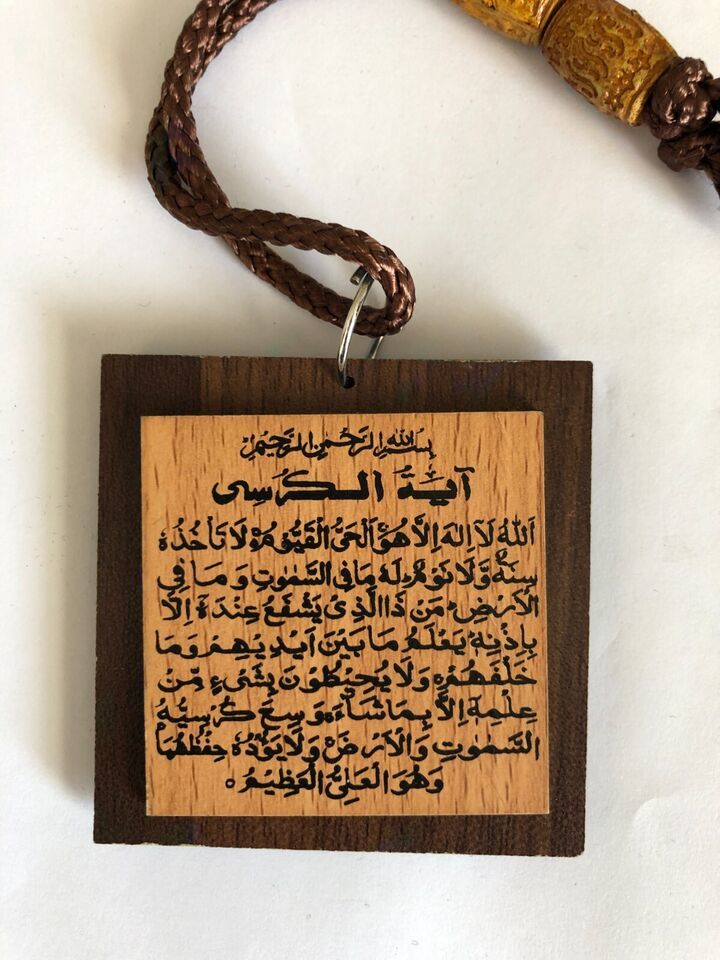 بسم الله الرحمن الرحيم
آيَةُ الكُرْسِى
اَللهُ لَآ اِلٰهَ اِلَّا هُوَ ۚ اَلْحَىُّ الْقَيُّوْمُ ۚ لَا تَأْخُذُهٗ
سِنَةٌ وَّلَا نَوْمٌ ؕ لَهٗ مَا فِى السَّمٰوٰتِ وَمَا فِى
الْاَرْضِ ؕ مَنْ ذَا الَّذِىْ يَشْفَعُ عِنْدَهٗٓ اِلَّا
بِاِذْنِهٖ ؕ يَعْلَمُ مَا بَيْنَ اَيْدِيْهِمْ وَمَا
خَلْفَهُمْ ۚ وَلَا يُحِيْطُوْنَ بِشَىْءٍ مِّنْ
عِلْمِهٖٓ اِلَّا بِمَا شَآءَ ۚ وَسِعَ كُرْسِيُّهُ
السَّمٰوٰتِ وَالْاَرْضَ ۚ وَلَا يَـُٔوْدُهٗ حِفْظُهُمَا ۚ
وَهُوَ الْعَلِىُّ الْعَظِيْمُ ○